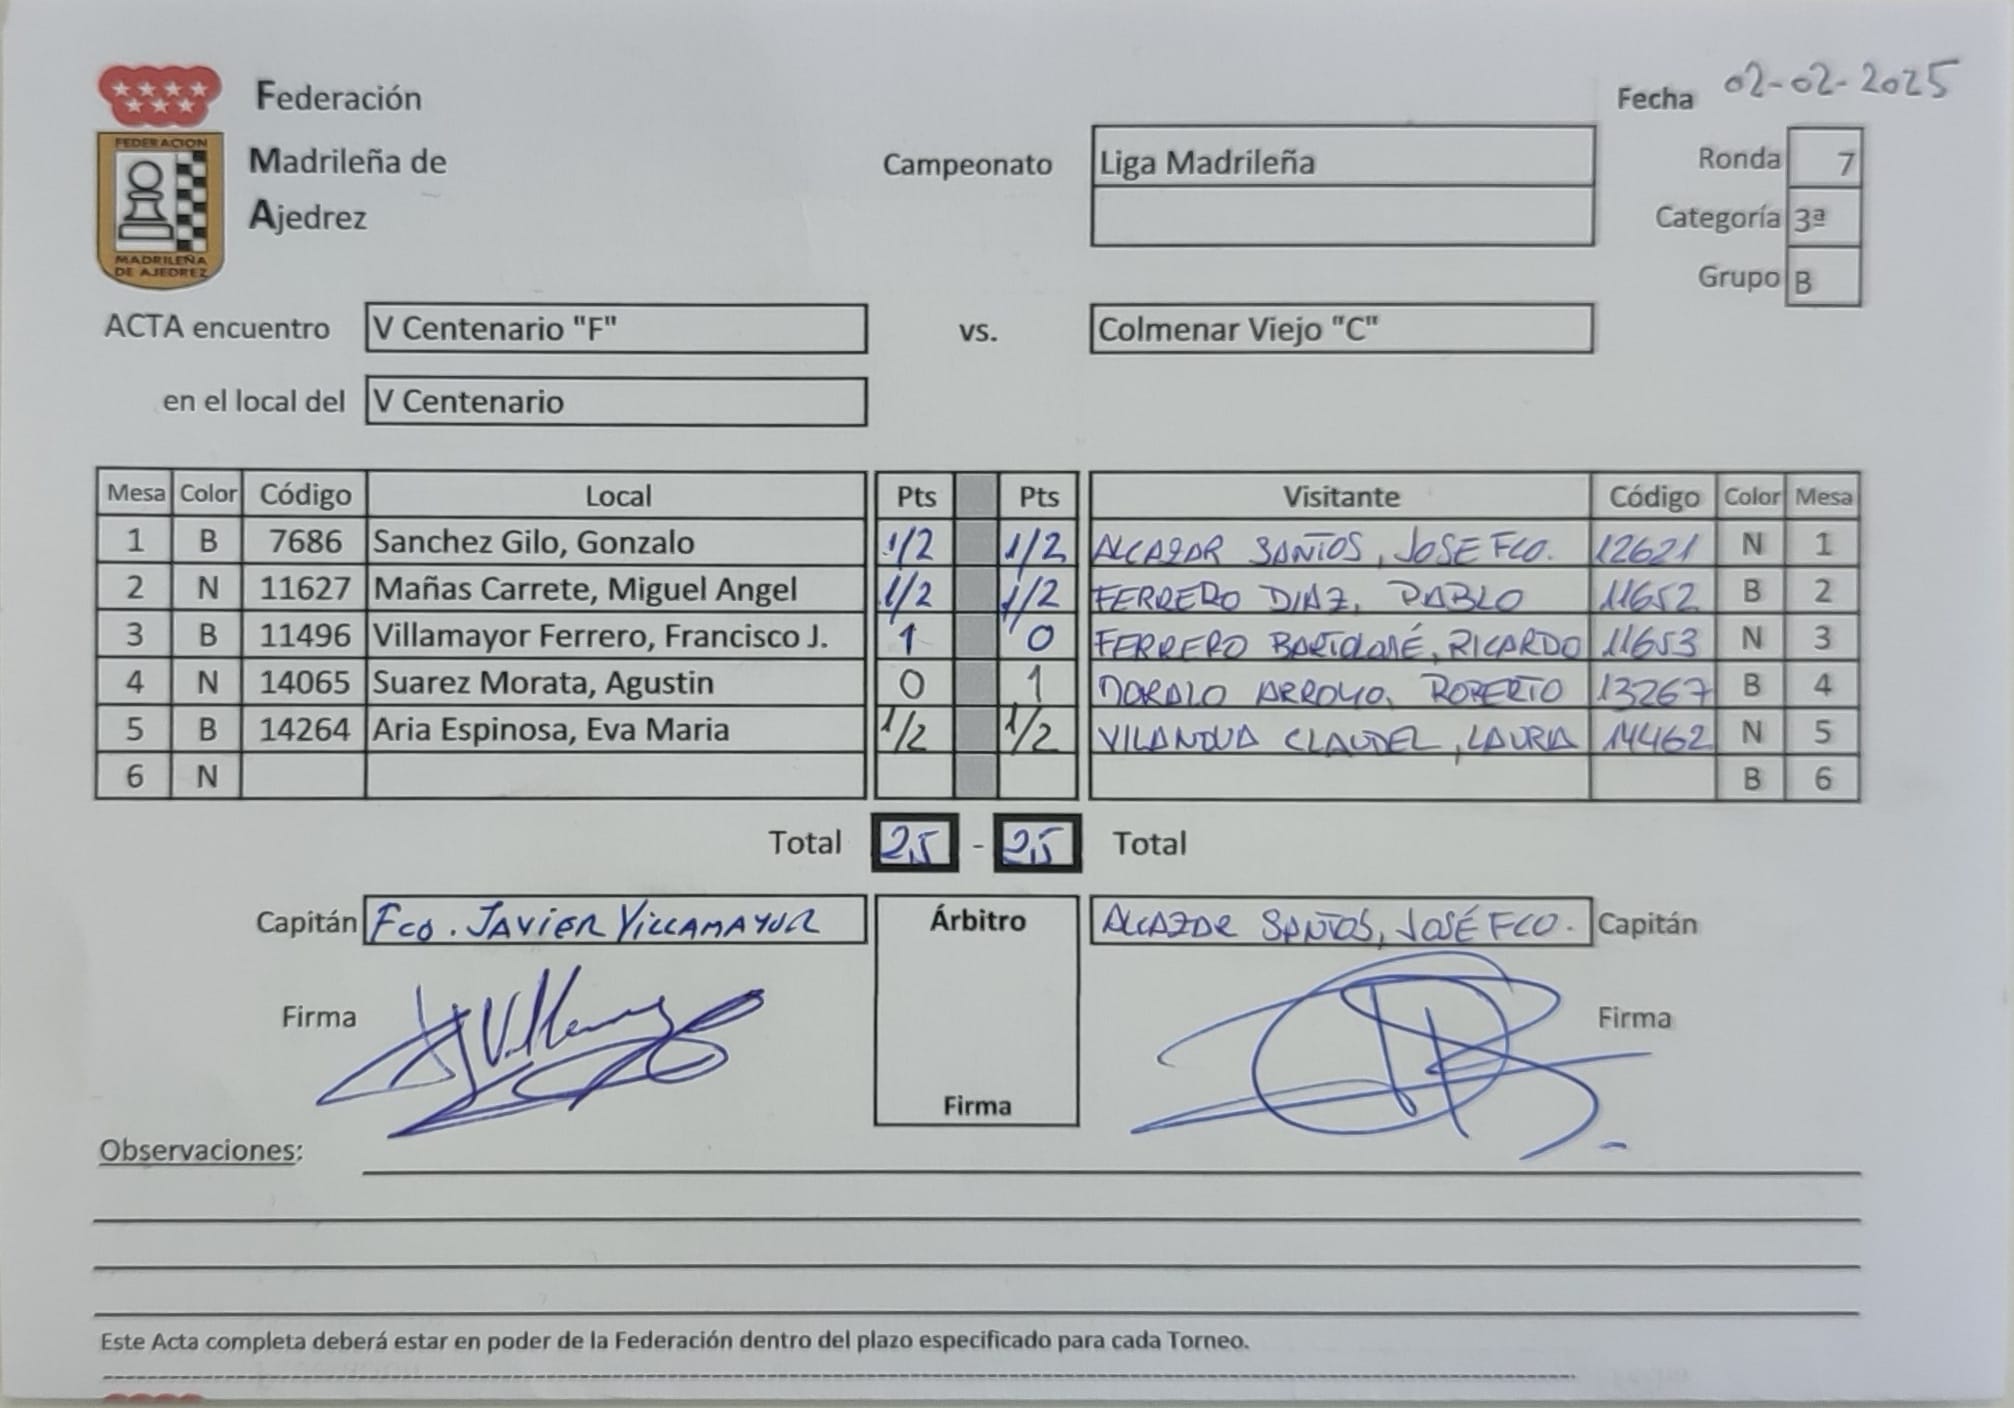 Federación
Madrileña de
Ajedrez
FEDERACION
MADRILEÑA
DE AJEDREZ
Fecha 02-02-2025
Campeonato Liga Madrileña
Ronda 7
Categoría 3ª
Grupo B
ACTA encuentro V Centenario "F" vs. Colmenar Viejo "C"
en el local del V Centenario
Mesa Color Código Local Pts Pts Visitante Código Color Mesa
1 B 7686 Sanchez Gilo, Gonzalo 1/2 1/2 ALCAZAR SANTOS, JOSE FCO. 12621 N 1
2 N 11627 Mañas Carrete, Miguel Angel 1/2 1/2 FERRERO DIAZ, PABLO 11652 B 2
3 B 11496 Villamayor Ferrero, Francisco J. 1 0 FERRERO BARTOLOMÉ, RICARDO 11653 N 3
4 N 14065 Suarez Morata, Agustin 0 1 ARROYO, ROBERTO 13267 B 4
5 B 14264 Aria Espinosa, Eva Maria 1/2 1/2 VILANOVA CLAUDEL, LAURA 14462 N 5
6 N B 6
Total 2,5 - 2,5 Total
Capitán Fco. JAVIER VILLAMAYOR Árbitro ALCAZAR SANTOS, JOSÉ FCO. Capitán
Firma Firma
Firma
Observaciones:
Este Acta completa deberá estar en poder de la Federación dentro del plazo especificado para cada Torneo.